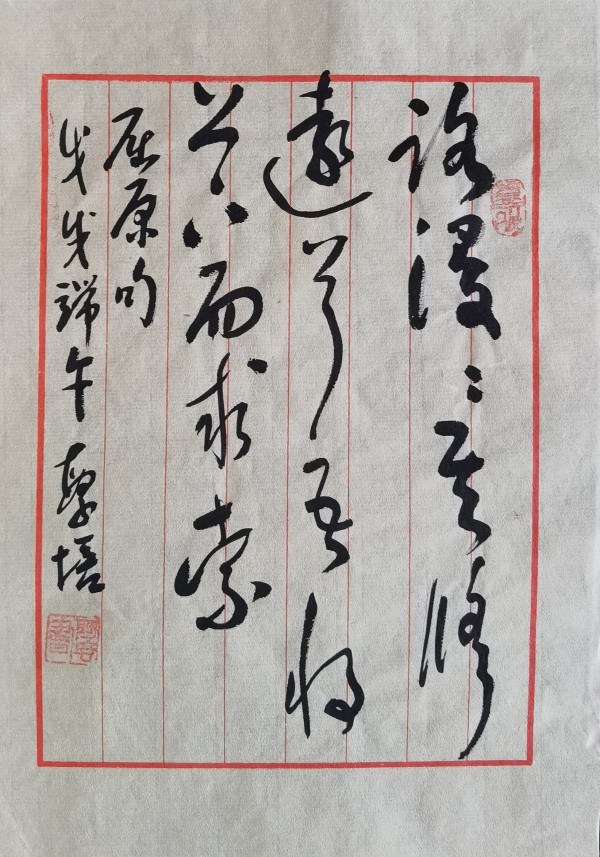 路漫〻其修
遠兮吾将
上下而求索
屈原句
戊戌端午